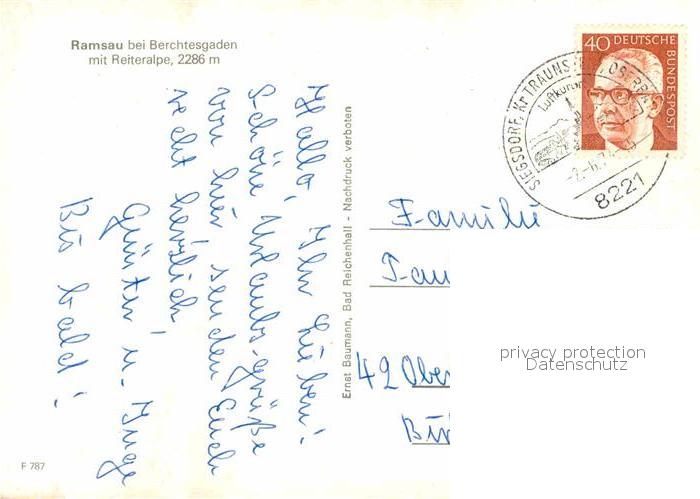 Ramsau bei Berchtesgaden
mit Reiteralpe, 2286 m
Hallo, Ihr Lieben!
Schöne Urlaubsgrüße
von hier senden Euch
recht herzlich
Günter u. Inge
Bis bald!
F 787
Ernst Baumann, Bad Reichenhall - Nachdruck verboten
40 DEUTSCHE
BUNDESPOST
SIEGSDORF, Kr TRAUNST
Luftkuror
8221
Familie
Tau
42 Ober
Bir
privacy protection
Datenschutz